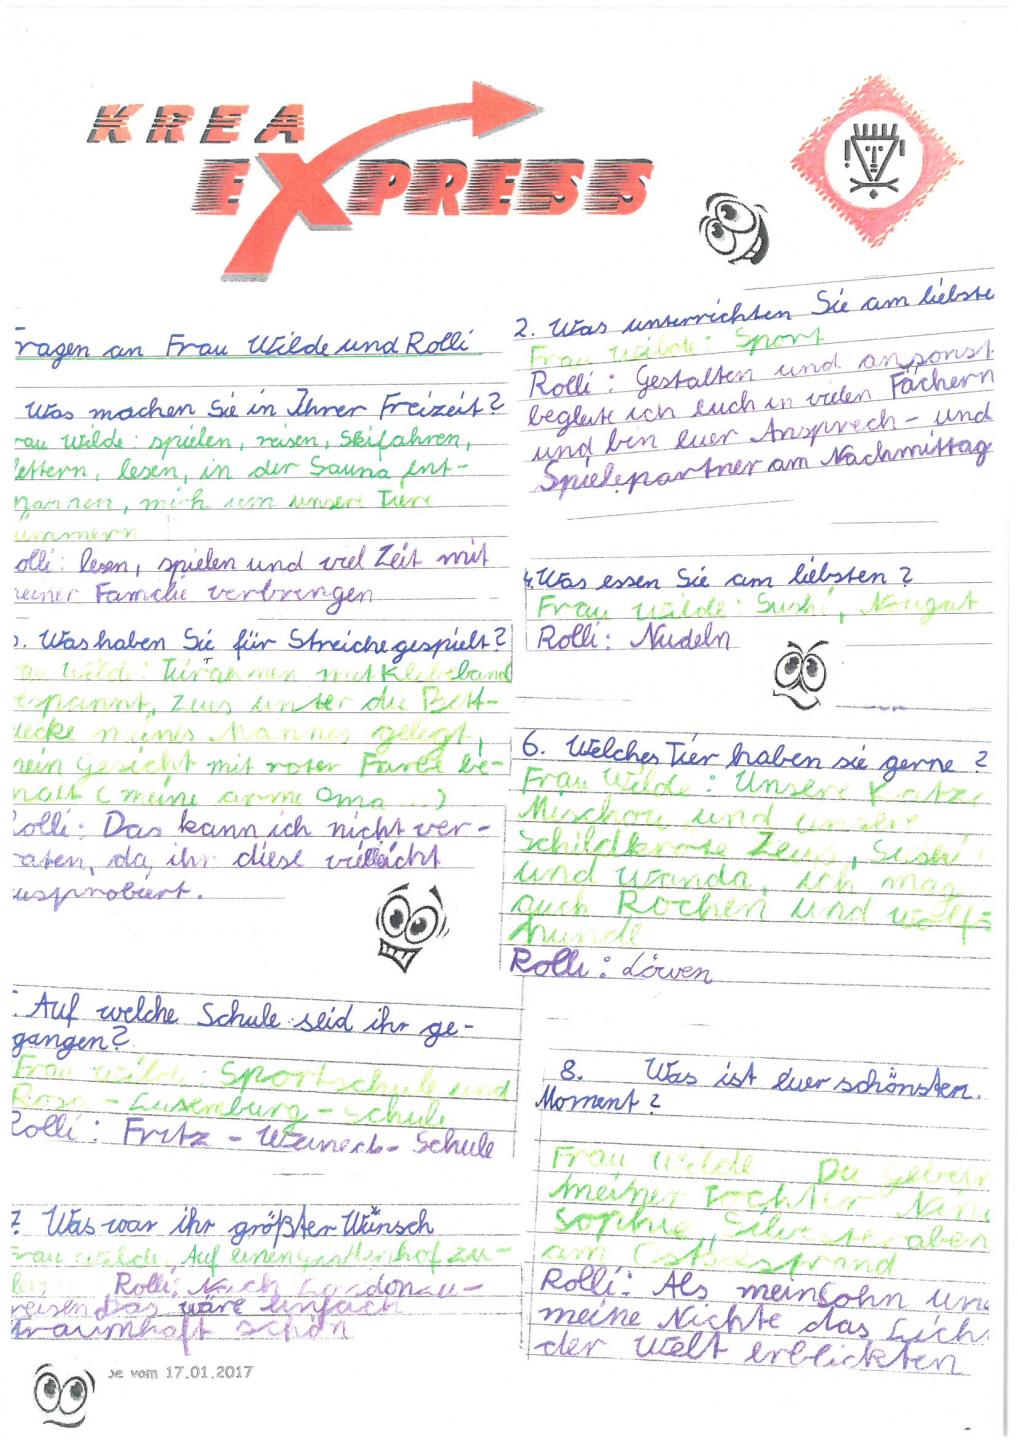 KREA
EXPRESS
ragen an Frau Wilde und Rolli
Was machen Sie in Ihrer Freizeit?
rau Wilde: spielen, reisen, Skifahren,
lettern, lesen, in der Sauna ent-
pannen, mich um unsere Tiere
ümmern
olli: lesen, spielen und viel Zeit mit
meiner Familie verbringen
2. Was unterrichten Sie am liebste
Frau Wilde: Sport
Rolli: Gestalten und ansonst
begleite ich euch in vielen Fächern
und bin euer Ansprech- und
Spielepartner am Nachmittag
. Was haben Sie für Streiche gespielt?
au Wilde: Türrahmen mit Klebeband
espannt, Zeus unter die Bett-
decke meines Mannes gelegt,
mein Gesicht mit roter Farbe be-
malt (meine arme Oma ...)
Rolli: Das kann ich nicht ver-
raten, da ihr diese vielleicht
usprobiert.
4. Was essen Sie am liebsten?
Frau Wilde: Sushi, Nougat
Rolli: Nudeln
. Auf welche Schule seid ihr ge-
gangen?
Frau Wilde: Sportschule und
Rosa-Luxemburg-Schule
Rolli: Fritz-Weineck-Schule
6. Welches Tier haben sie gerne?
Frau Wilde: Unsere Katze
und unsere
Schildkröte Zeus, Sushi
und Wanda, ich mag
auch Rochen und Wolfs
hunde
Rolli: Löwen
7. Was war ihr größter Wünsch
Frau Wilde, Auf einen zu-
Rolli: Nach
reisen Das wäre einfach
traumhaft schön
8. Was ist euer schönsten.
Moment?
Frau Wilde Die Gebur
meiner Tochter Nin
Sophie, Silvesteraben
am Ostseestrand
Rolli: Als mein Sohn und
meine Nichte das Lich
der Welt erblickten
be vom 17.01.2017